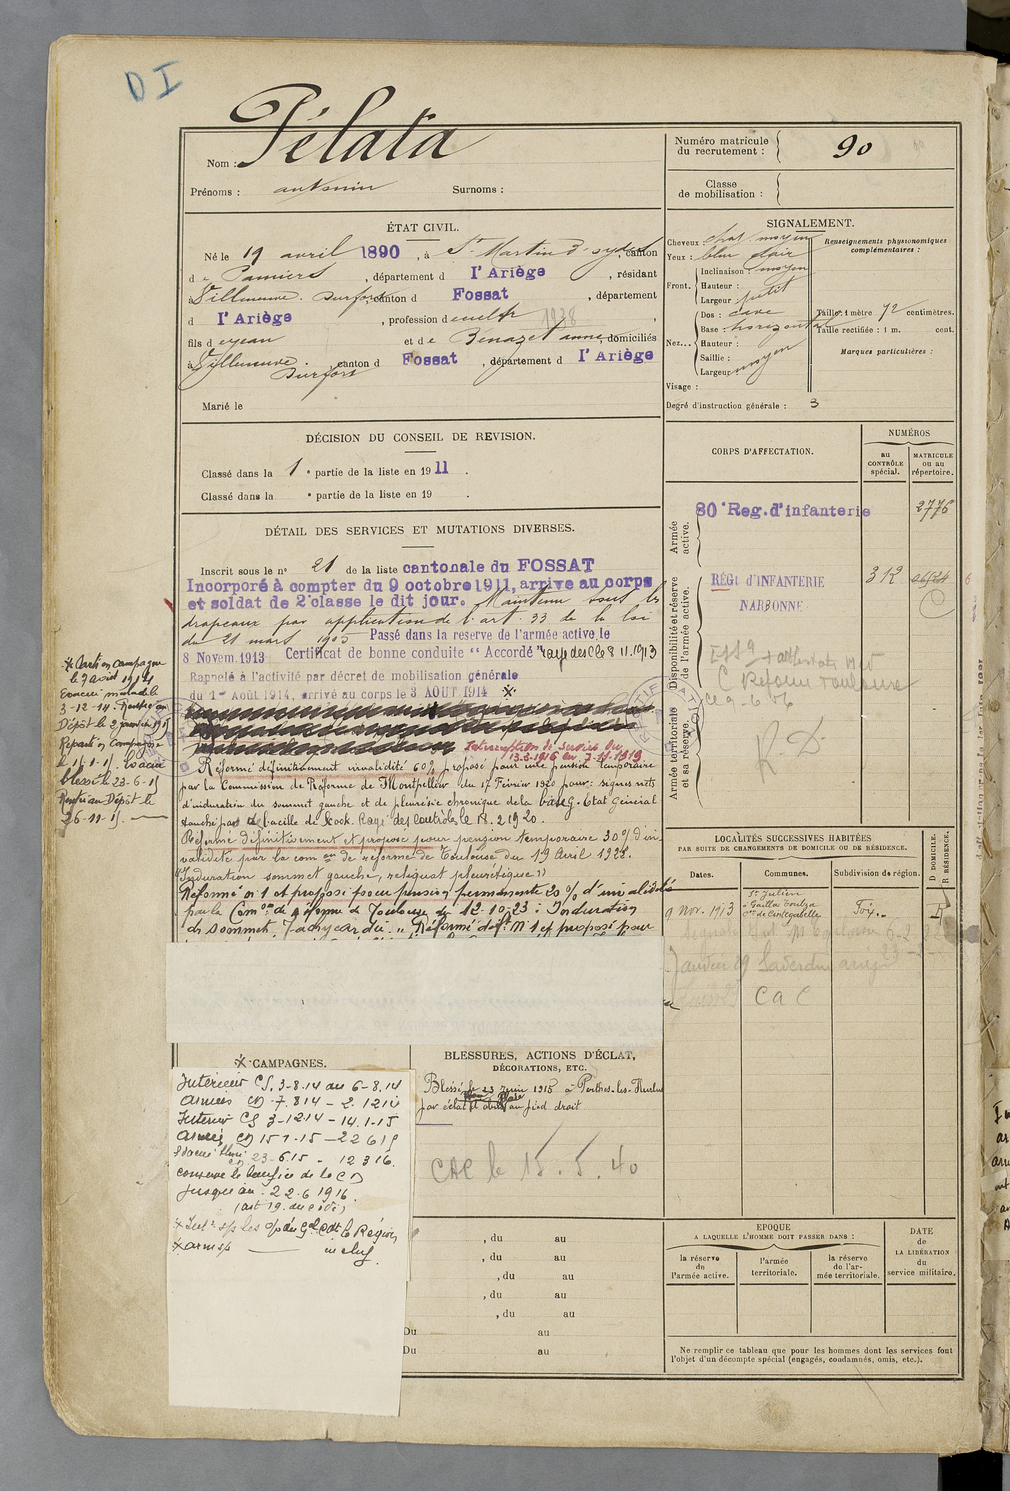 D I
Nom : Pélata
Prénoms : antonin Surnoms :
Numéro matricule du recrutement : 90
Classe de mobilisation :
ÉTAT CIVIL.
Né le 19 avril 1890, à St Martin d'oydes, canton
de Pamiers, département d l'Ariège, résidant
à Villeneuve-durfort, canton d Fossat, département
d l'Ariège, profession de cultr
fils de jean et de Benazet anne domiciliés
à Villeneuve durfort canton d Fossat, département d l'Ariège
Marié le
SIGNALEMENT.
Cheveux : chat. moyen
Yeux : bleu clair
Front. Inclinaison : moyen
Hauteur :
Largeur : petit
Nez... Dos : cave
Base : horizontal
Hauteur :
Saillie :
Largeur : moyen
Visage :
Degré d'instruction générale : 3
Renseignements physionomiques complémentaires :
Taille : 1 mètre 72 centimètres.
Taille rectifiée : 1 m. cent.
Marques particulières :
DÉCISION DU CONSEIL DE REVISION.
Classé dans la 1 e partie de la liste en 1911.
Classé dans la e partie de la liste en 19 .
CORPS D'AFFECTATION.
NUMÉROS
au CONTRÔLE spécial.
MATRICULE ou au répertoire.
Armée active.
80e Reg. d'infanterie 2776
Disponibilité et réserve de l'armée active.
RÉGt d'INFANTERIE 312
NARBONNE
C Réforme Toulouse
Armée territoriale et sa réserve.
R D
DÉTAIL DES SERVICES ET MUTATIONS DIVERSES.
Inscrit sous le n° 21 de la liste cantonale du FOSSAT
Incorporé à compter du 9 octobre 1911, arrive au corps
et soldat de 2e classe le dit jour. Maintenu sous les
drapeaux par application de l'art. 33 de la loi
du 21 mars 1905 Passé dans la reserve de l'armée active, le
8 Novem. 1913 Certificat de bonne conduite "Accordé" rayé des c le 8 11.1913
Rappelé à l'activité par décret de mobilisation générale
du 1er Août 1914, arrivé au corps le 3 AOUT 1914 *
Interruption de service du
13-3-1916 au 7-11-1919
Réformé définitivement invalidité 60% proposé pour une pension temporaire
par la Commission de Réforme de Montpellier du 17 Février 1920 pour: signes nets
d'induration du sommet gauche et de pleurésie chronique de la base g. Etat général
touché pas de bacille de Kock. Rayé des contrôles le 18.2.1920.
Réformé définitivement et proposé pour pension temporaire 30% d'in
validité par la com on de réforme de Toulouse du 19 Avril 1922.
"Induration sommet gauche, reliquat pleuritique"
Réformé n° 1 et proposé pour pension permanente 20% d'invalidité
par la Com on de réforme de Toulouse du 12-10-23 : Induration
du sommet, Tachycardie. " Réformé déft n° 1 et proposé pour
* Parti en campagne
le 7 août 1914
Evacué malade le
3-12-14. Rentré au
Dépôt le 2 janvier 1915
Reparti en Campagne
le 15-1-15. Evacué
blessé le 23-6-15
Rentré au Dépôt le
26-11-15.
LOCALITÉS SUCCESSIVES HABITÉES
PAR SUITE DE CHANGEMENTS DE DOMICILE OU DE RÉSIDENCE.
Dates. Communes. Subdivision de région. D DOMICILE. R RÉSIDENCE.
9 Nov. 1913 St Julien Foix
Janvier 29 Saverdun
CAC
* CAMPAGNES.
Intérieur CS. 3-8.14 au 6-8.14
Armées CD 7.814 - 2.1214
Intérieur CS 3-1214 - 14.1-15
Armées CD 15 1-15 - 22 615
23-615 - 12 3 16.
conserve le bénéfice de la CD
jusqu'au 22.6 1916.
BLESSURES, ACTIONS D'ÉCLAT,
DÉCORATIONS, ETC.
Blessé le 23 Juin 1915 à Perthes-les-Hurlus
par éclat d'obus au pied droit
CAC le 15.5.40
, du au
, du au
, du au
, du au
, du au
Du au
Du au
EPOQUE
A LAQUELLE L'HOMME DOIT PASSER DANS :
la réserve de l'armée active.
l'armée territoriale.
la réserve de l'armée territoriale.
DATE de LA LIBÉRATION du service militaire.
Ne remplir ce tableau que pour les hommes dont les services font
l'objet d'un décompte spécial (engagés, condamnés, omis, etc.).